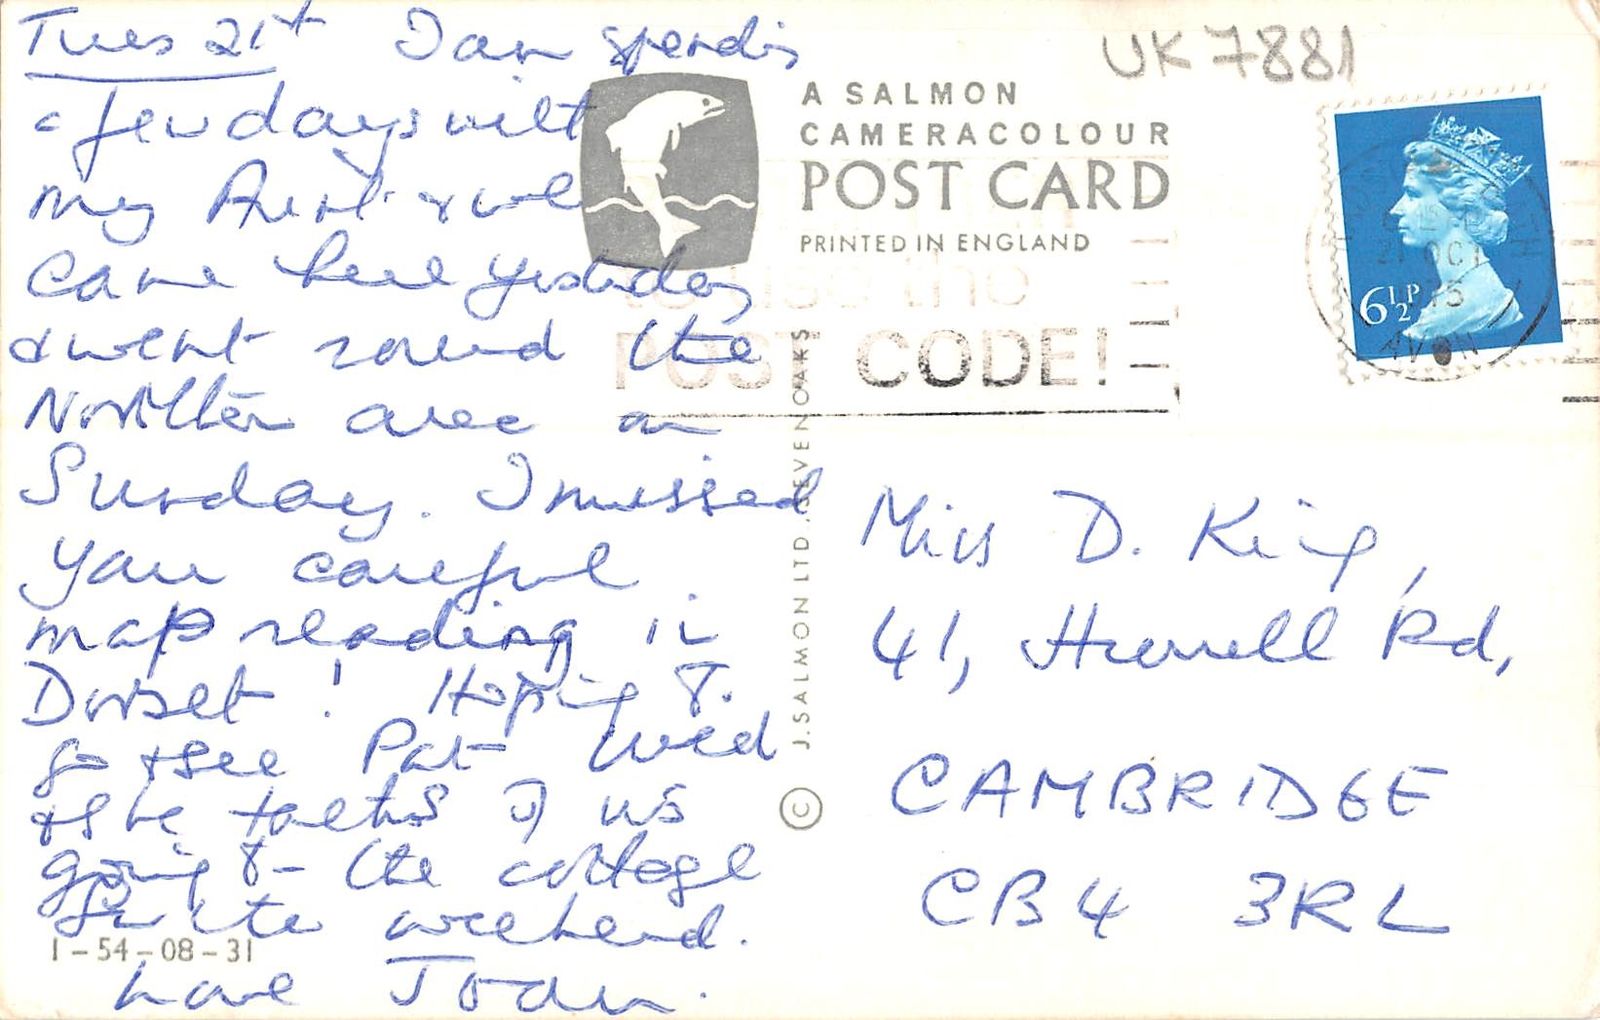 Tues 21st I am spending
a few days with
my Aunt & we
came here yesterday
& went round the
Northern area on
Sunday. I missed
your careful
map reading in
Dorset! Hoping to
go & see Pat Wed
& she talks of us
going to the cottage
for the weekend.
Love
1-54-08-31
UK 7881
A SALMON
CAMERACOLOUR
POST CARD
PRINTED IN ENGLAND
the
POST CODE!
© J. SALMON LTD., SEVENOAKS
6½P
21 OCT
AVON
Miss D. King,
41, Hurrell Rd,
CAMBRIDGE
CB4 3RL